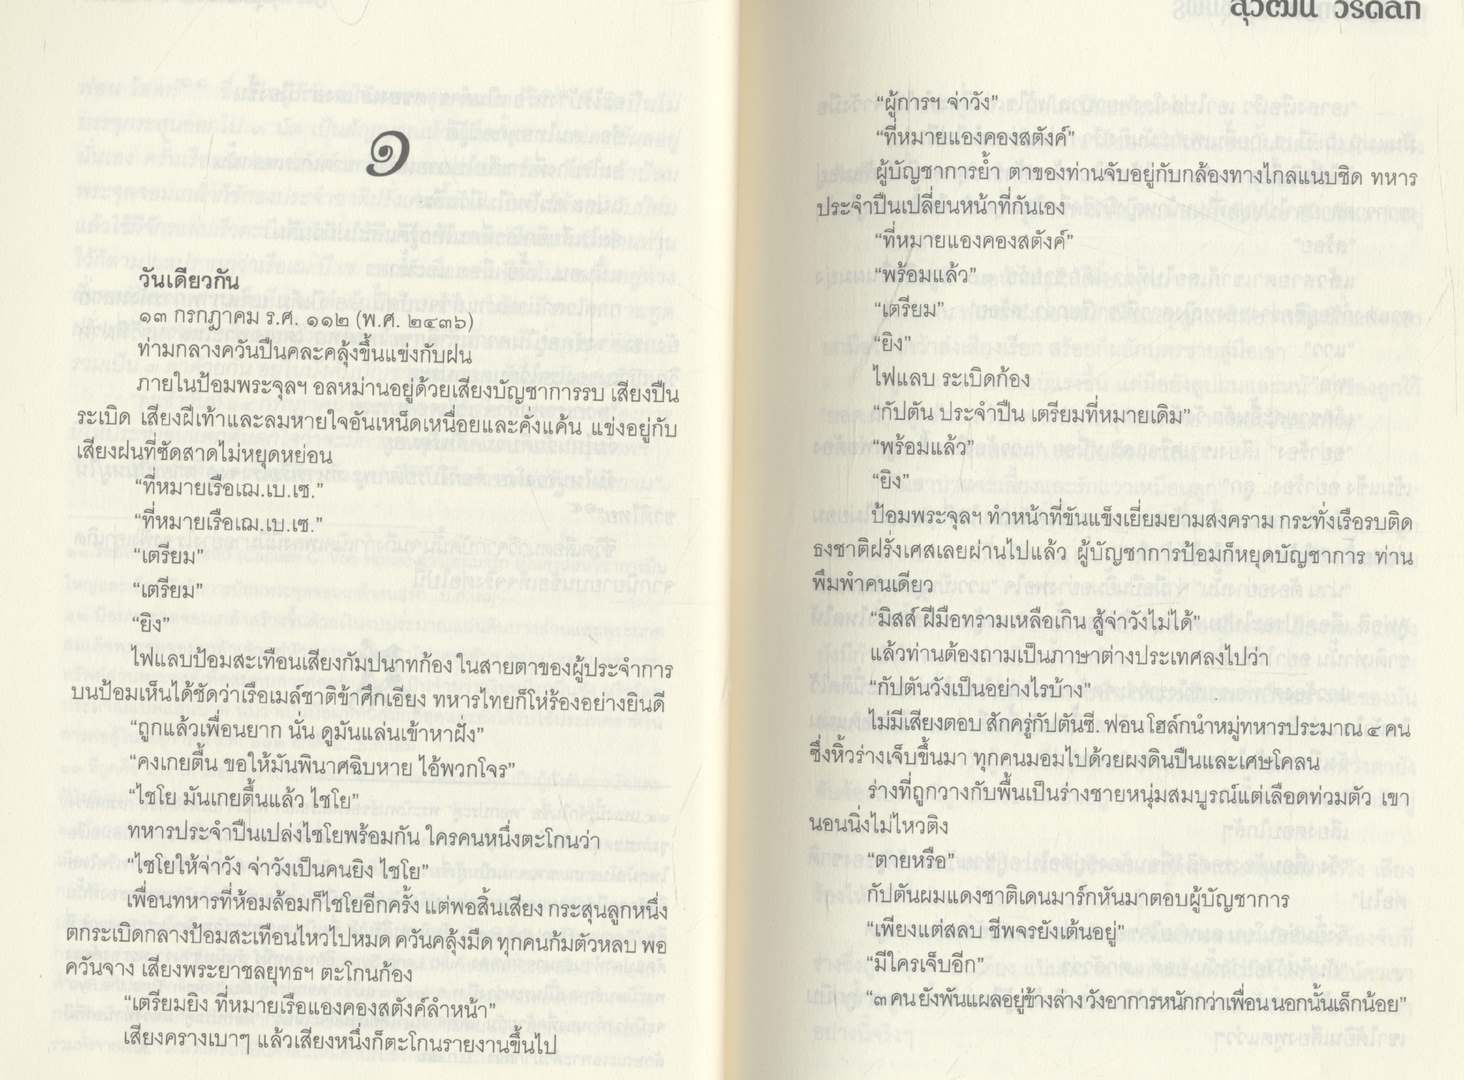 ๑
วันเดียวกัน
๑๓ กรกฎาคม ร.ศ. ๑๑๒ (พ.ศ. ๒๔๓๖)
ท่ามกลางควันปืนคละคลุ้งขึ้นแขงกับฝน
ภายในป้อมพระจุลฯ อลหม่านอยู่ด้วยเสียงบัญชาการรบ เสียงปืน
ระเบิด เสียงฝีเท้าและลมหายใจอันเหน็ดเหนื่อยและคั่งแค้น แข่งอยู่กับ
เสียงฝนที่ซัดสาดไม่หยุดหย่อน
“ที่หมายเรือเฌ.เบ.เซ.”
“ที่หมายเรือเฌ.เบ.เซ.”
“เตรียม”
“เตรียม”
“ยิง”
ไฟแลบป้อมสะเทือนเสียงกัมปนาทก้อง ในสายตาของผู้ประจำการ
บนป้อมเห็นได้ชัดว่าเรือเมล์ชาติข้าศึกเอียง ทหารไทยก็โห่ร้องอย่างยินดี
“ถูกแล้วเพื่อนยาก นั่น ดูมันแล่นเข้าหาฝั่ง”
“คงเกยตื้น ขอให้มันพินาศฉิบหาย ไอ้พวกโจร”
“ไชโย มันเกยตื้นแล้ว ไชโย”
ทหารประจำปืนเปล่งไชโยพร้อมกัน ใครคนหนึ่งตะโกนว่า
“ไชโยให้จ่าวัง จ่าวังเป็นคนยิง ไชโย”
เพื่อนทหารที่ห้อมล้อมก็ไชโยอีกครั้ง แต่พอสิ้นเสียง กระสุนลูกหนึ่ง
ตกระเบิดกลางป้อมสะเทือนไหวไปหมด ควันคลุ้งมืด ทุกคนก้มตัวหลบ พอ
ควันจาง เสียงพระยาชลยุทธฯ ตะโกนก้อง
“เตรียมยิง ที่หมายเรือแองคองสตังค์ลำหน้า”
เสียงครางเบาๆ แล้วเสียงหนึ่งก็ตะโกนรายงานขึ้นไป
สุวัฒน์ วรดิลก
“ผู้การฯ จ่าวัง”
“ที่หมายแองคองสตังค์”
ผู้บัญชาการย้ำ ตาของท่านจับอยู่กับกล้องทางไกลแนบชิด ทหาร
ประจำปืนเปลี่ยนหน้าที่กันเอง
“ที่หมายแองคองสตังค์”
“พร้อมแล้ว”
“เตรียม”
“ยิง”
ไฟแลบ ระเบิดก้อง
“กัปตัน ประจำปืน เตรียมที่หมายเดิม”
“พร้อมแล้ว”
“ยิง”
ป้อมพระจุลฯ ทำหน้าที่ขันแข็งเยี่ยมยามสงคราม กระทั่งเรือรบติด
ธงชาติฝรั่งเศสเลยผ่านไปแล้ว ผู้บัญชาการป้อมก็หยุดบัญชาการ ท่าน
พึมพำคนเดียว
“มิสส์ ฝีมือทรามเหลือเกิน สู้จ่าวังไม่ได้”
แล้วท่านต้องถามเป็นภาษาต่างประเทศลงไปว่า
“กัปตันวังเป็นอย่างไรบ้าง”
ไม่มีเสียงตอบ สักครู่กัปตันซี. ฟอน โฮล์กนำหมู่ทหารประมาณ ๔ คน
ซึ่งหิ้วร่างเจ็บขึ้นมา ทุกคนมอมไปด้วยผงดินปืนและเศษโคลน
ร่างที่ถูกวางกับพื้นเป็นร่างชายหนุ่มสมบูรณ์แต่เลือดท่วมตัว เขา
นอนนิ่งไม่ไหวติง
“ตายหรือ”
กัปตันผมแดงชาติเดนมาร์กหันมาตอบผู้บัญชาการ
“เพียงแต่สลบ ชีพจรยังเต้นอยู่”
“มีใครเจ็บอีก”
“๓ คน ยังพันแผลอยู่ข้างล่าง วังอาการหนักกว่าเพื่อน นอกนั้นเล็กน้อย”